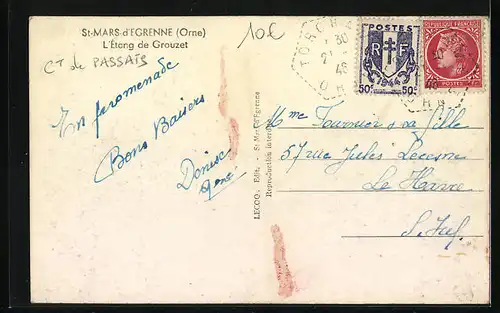 St-MARS-d'EGRENNE (Orne)
L'Etang de Grouzet
10€
Ct de PASSAIS
En promenade
Bons Baisers
Denise
LECOQ, Édit. - St-Mars-d'Egrenne
Reproduction interdite
TORCH
30
21
46
O
POSTES
RF
1944
50c 50c
REPUBLIQUE FRANÇAISE
POSTES
Mme Tournier & sa fille
57 rue Jules Lecesne
Le Havre
S. Inf.